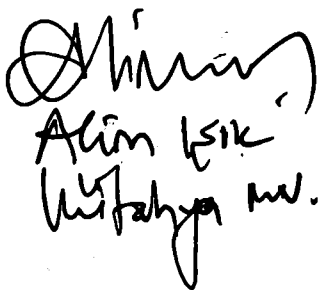 Alim Işık
Kütahya mv.